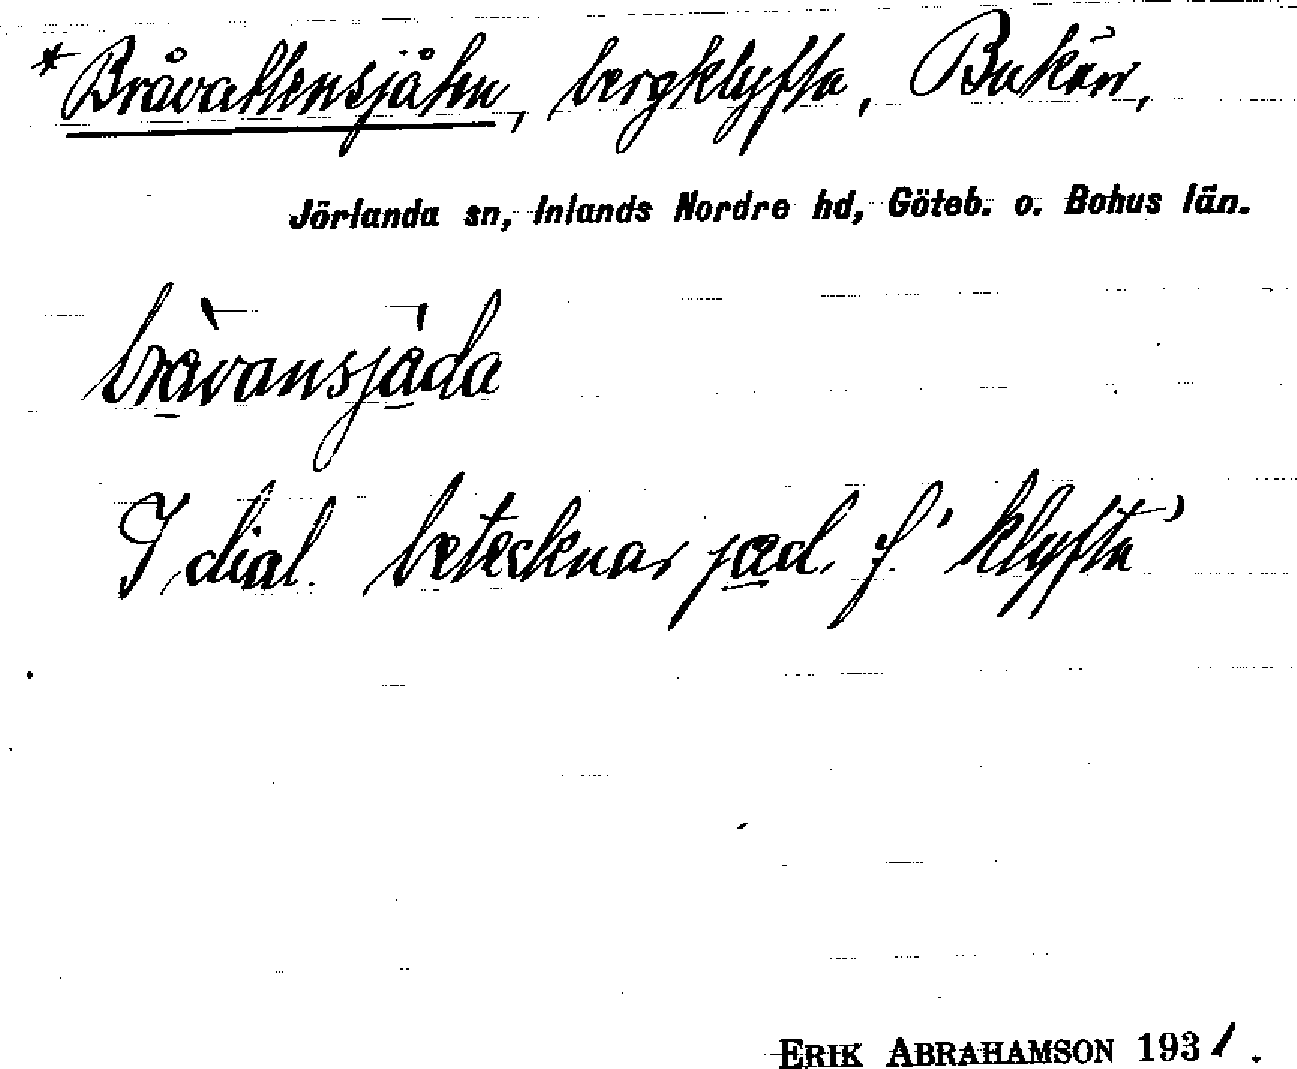 *Bråvattensjåten, bergklyfta, Bukärr,
Jörlanda sn, Inlands Nordre hd, Göteb. o. Bohus län.
bràvansjáda
I dial. betecknar jæd. f. 'klyfta'
ERIK ABRAHAMSON 1931.